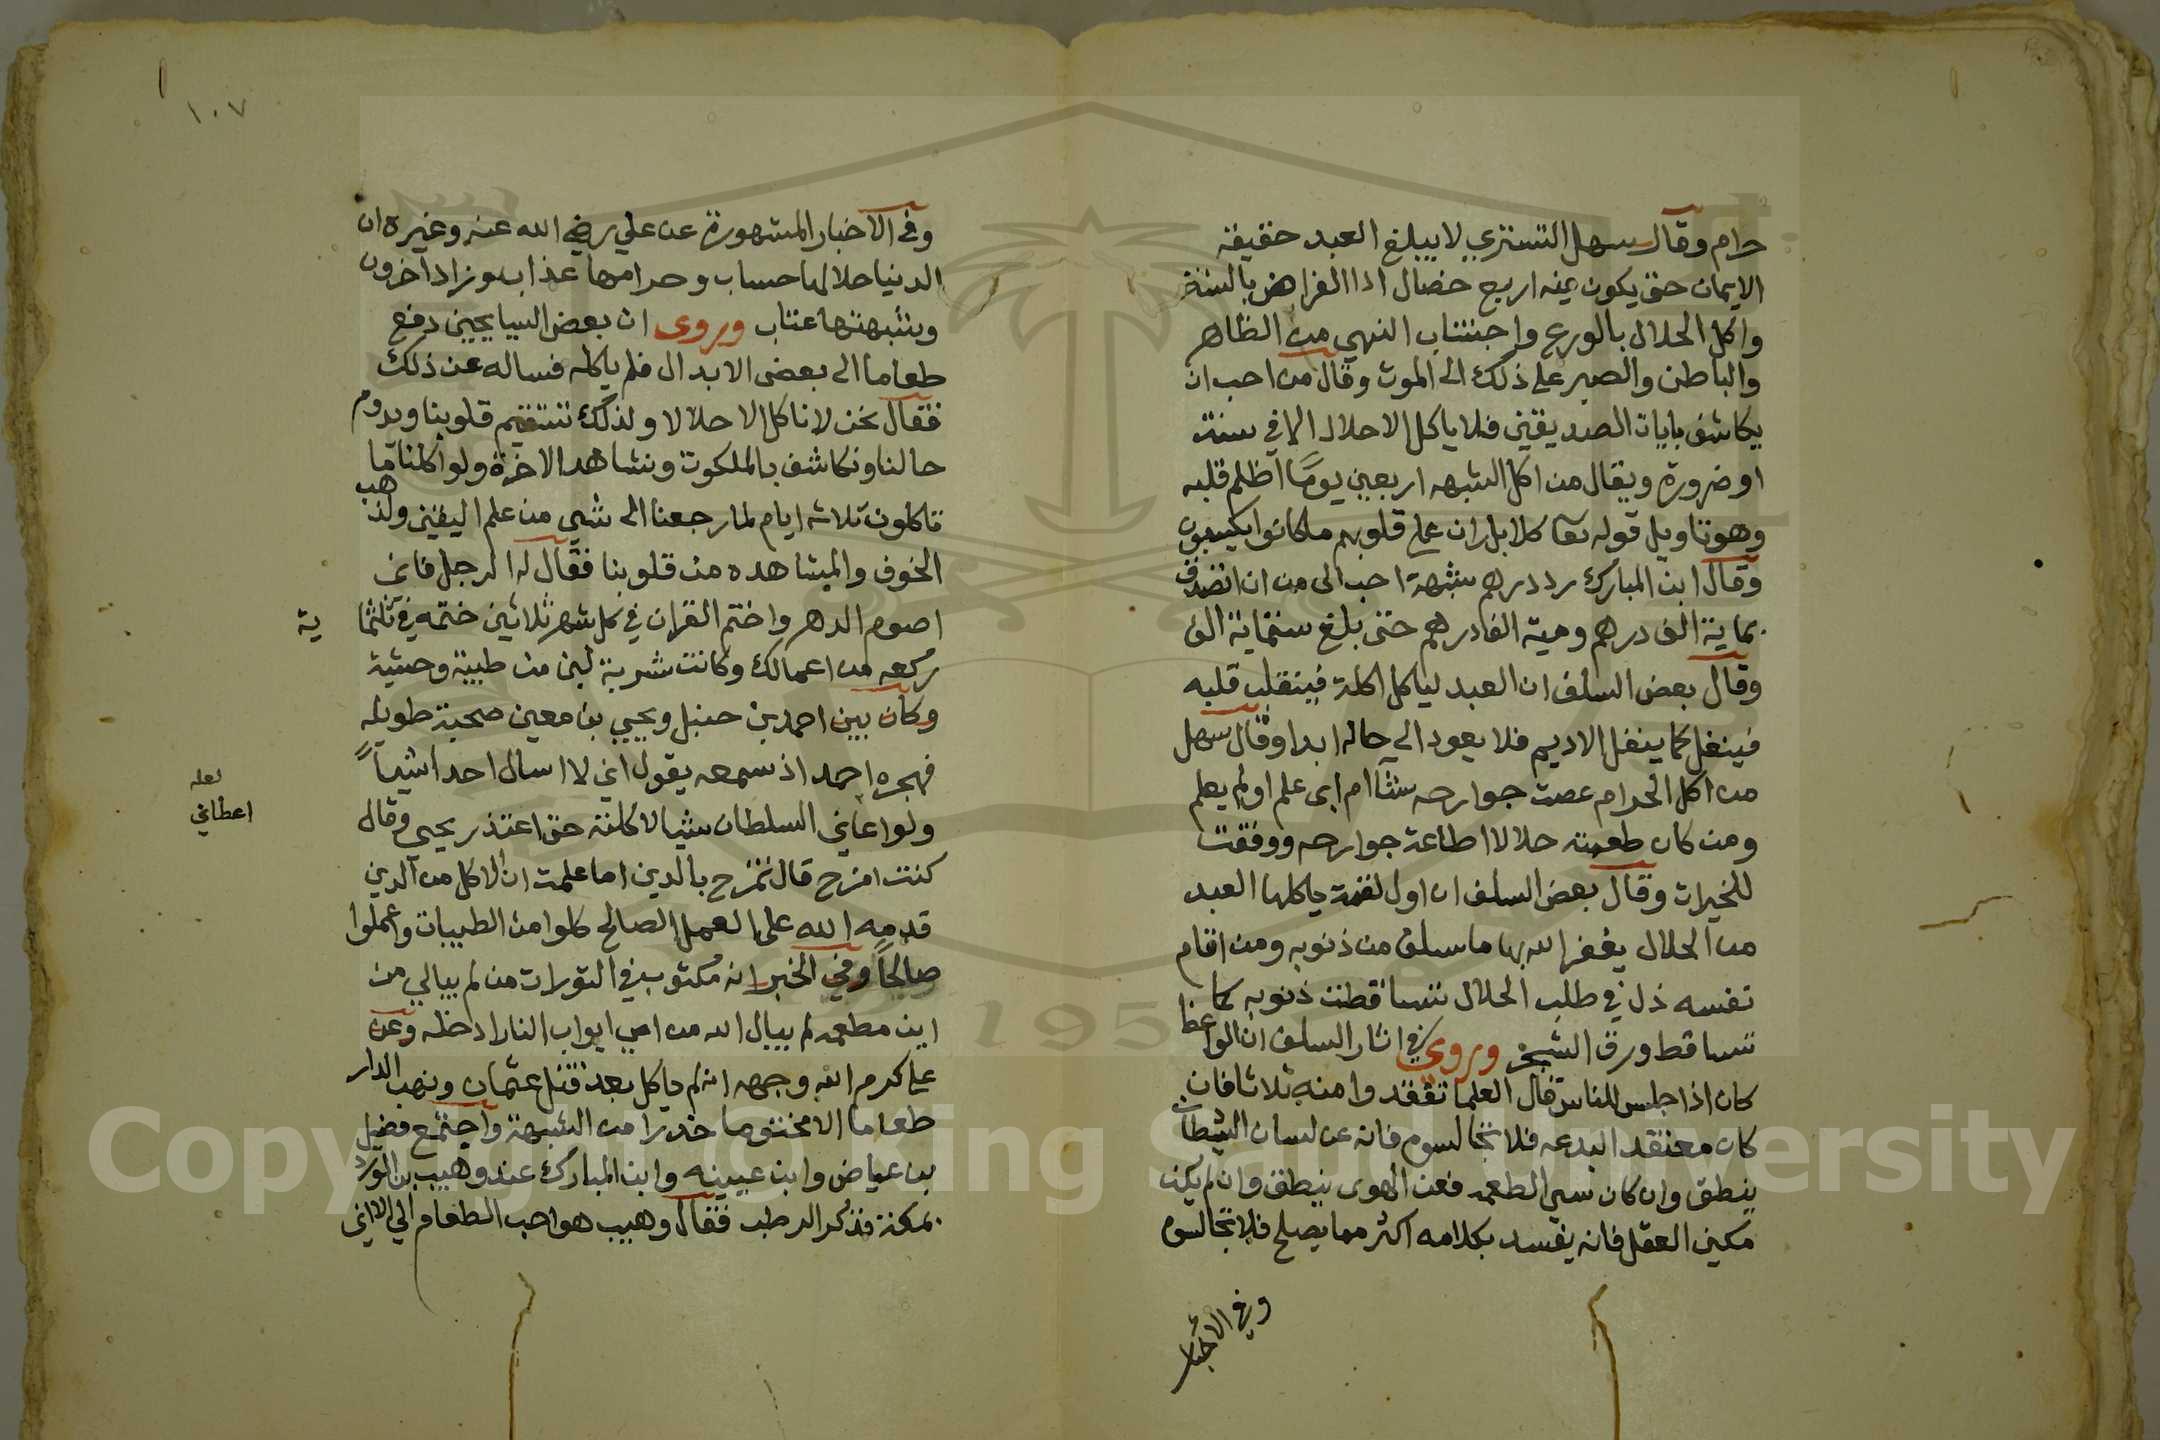 حرام وقال سهل التستري لا يبلغ العبد حقيقة
الايمان حتى يكون فيه اربع خصال ادا الفرائض بالسنة
واكل الحلال بالورع واجتناب النهي من الظاهر
والباطن والصبر على ذلك الى الموت وقال من احب ان
يكاشف بايات الصديقين فلا ياكل الا حلالا الا في سنة
او ضرورة ويقال من اكل الشبهه اربعين يومًا اظلم قلبه
وهو تاويل قوله تعا كلا بل ران على قلوبهم ما كانوا يكسبون
وقال ابن المبارك رد درهم شبهة احب الى من ان اتصدق
بماية الف درهم ومية الف درهم حتى بلغ ستماية الف
وقال بعض السلف ان العبد لياكل اكلة فينقلب قلبه
فينغل كما ينغل الاديم فلا يعود الى حاله ابدا وقال سهل
من اكل الحرام عصت جوارحه شاام ابى علم اولم يعلم
ومن كان طعمته حلالا اطاعة جوارحه ووفقت
للخيرات وقال بعض السلف ان اول لقمة ياكلها العبد
من الحلال يغفر الله بها ما سلف من ذنوبه ومن اقام
نفسه ذل في طلب الحلال تتساقطت ذنوبه كما
تساقط ورق الشجر وروي في اثار السلف ان الواعظ
كان اذا جلس للناس قال العلما تفقدوا منه ثلاثا فان
كان معتقد البدعه فلا تجالسوه فانه عن لسان الشيطان
ينطق وان كان سي الطعمه فعن الهوى ينطق وان لم يكن
مكين العقل فانه يفسد بكلامه اكثر مما يصلح فلا تجالسوه
وفي الاخبار
١٠٧
وفي الاخبار المشهورة عن علي رضي الله عنه وغيره ان
الدنيا حلالها حساب وحرامها عذاب وزاد اخرون
وشبهتها عتاب وروى ان بعض السيايحين دفع
طعاما الى بعض الابدال فلم ياكله فساله عن ذلك
فقال نحن لا ناكل الا حلالا ولذلك تستقيم قلوبنا ويدوم
حالنا ونكاشف بالملكوت ونشاهد الاخرة ولو اكلنا مما
تاكلون ثلاثه ايام لما رجعنا الى شي من علم اليقين ولذهب
الخوف والمشاهده من قلوبنا فقال له الرجل فاني
اصوم الدهر واختم القران في كل شهر ثلاثين ختمه في ثلثما
ية
ركعه من اعمالك وكانت شربة لبن من ظبية وحشية
وكان بين احمد بن حنبل ويحيي بن معين صحبة طويله
فهجره احمد اذ سمعه يقول اني لا اسال احدا شيأً
لعله
اعطاني
ولو اعاني السلطان شيا لاكلته حتى اعتذر يحيى وقال
كنت امزح قال تمزح بالدين اما علمت ان الاكل من الدين
قدمه الله على العمل الصالح كلوا من الطيبات واعملوا
صالحاً وفي الخبر انه مكتوب في التورات من لم يبالي من
اين مطعمه لم يبال الله من اي ابواب النار ادخله وعن
علي كرم الله وجهه انه لم ياكل بعد قتل عثمان ونهب الدار
طعاما الا مختوما حذرا من الشبهة واجتمع فضيل
بن عياض وابن عيينه وابن المبارك عند وهيب بن الورد
بمكة فذكر الرطب فقال وهيب هو احب الطعام الي الا اني